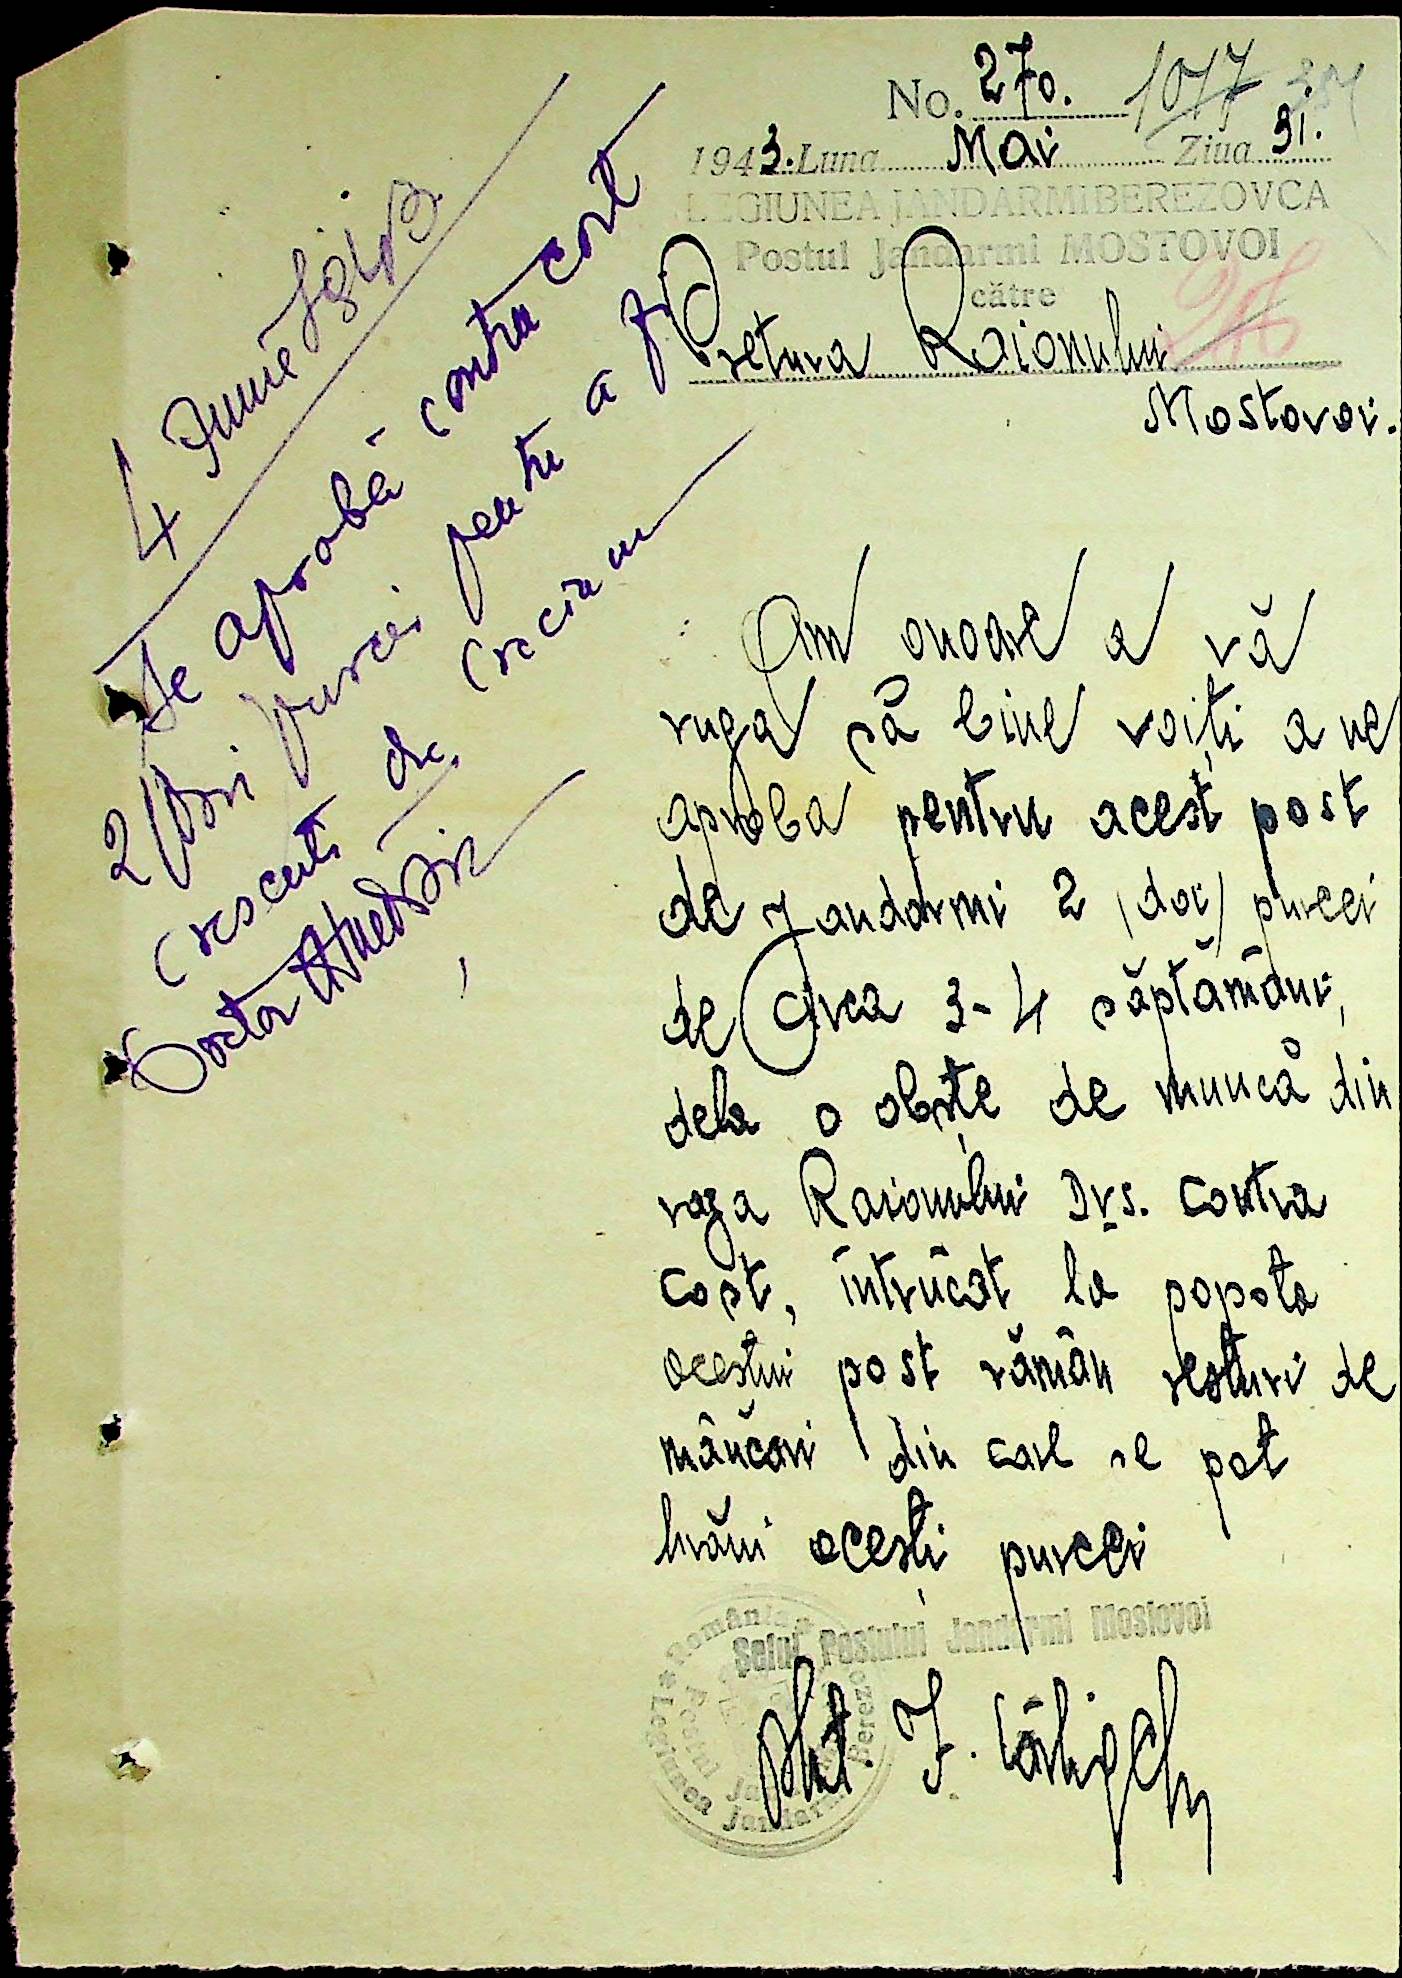 No. 270. 1077
1943. Luna Mai Ziua 31.
LEGIUNEA JANDARMI BEREZOVCA
Postul Jandarmi MOSTOVOI
către
Pretura Raionului
Mostovoi.
Am onoare a vă
ruga să bine voiți a ne
aproba pentru acest post
de Jandarmi 2 (doi) purcei
de circa 3-4 săptămâni,
dela o obște de muncă din
raza Raionului Dvs. contra
cost, întrucât la popota
acestui post rămân resturi de
mâncări din care se pot
hrăni acești purcei
Șeful Postului Jandarmi Mostovoi
Plut. I.
România
Legiunea Jandarmi Berezo
Postul
4 Iunie
Se aprobă contra cost
2 purcei pentru a fi
crescuți de Crăciun
Doctor